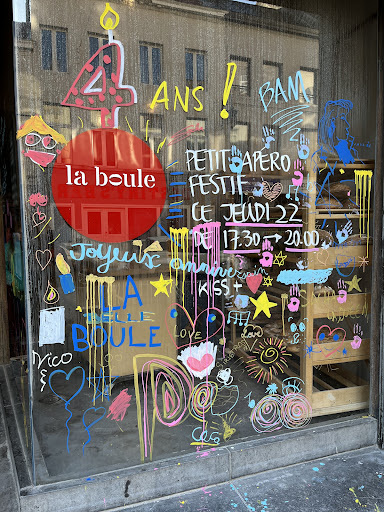 4
ANS !
BAM
la boule
PETIT APÉRO
FESTIF
CE JEUDI 22
DE 17.30 → 20.00
Joyeux anniversaire
KISS
LA
BOULE
LOVE
love
NICO